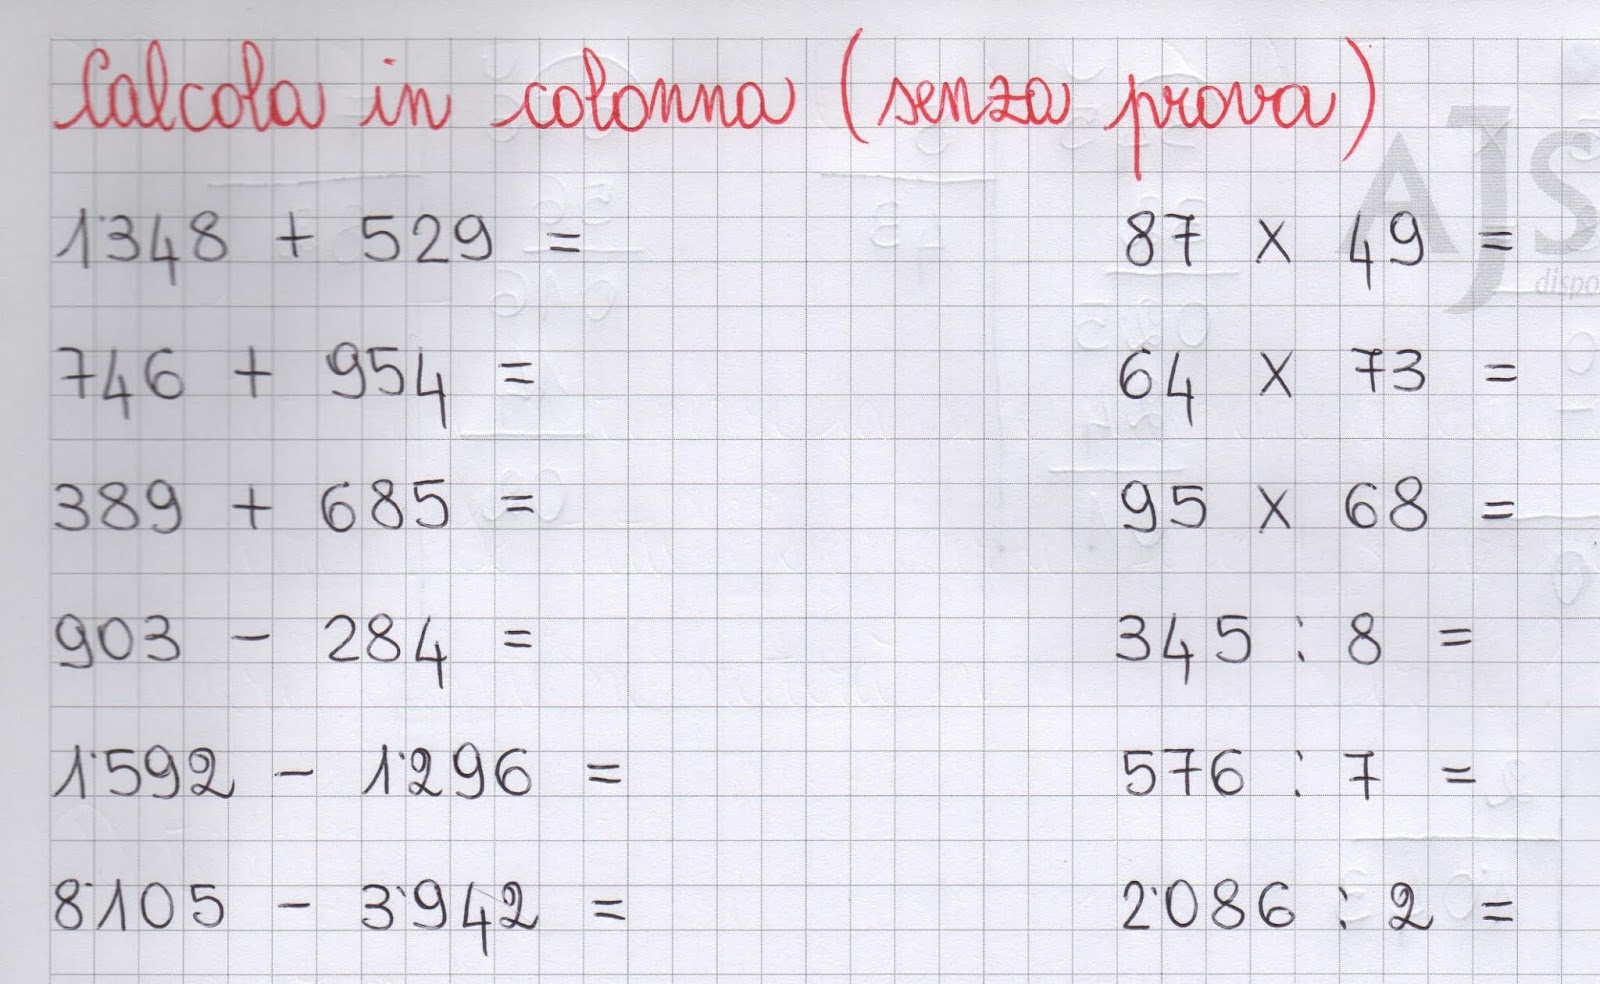 Calcola in colonna (senza prova)
1'348 + 529 =
746 + 954 =
389 + 685 =
903 - 284 =
1'592 - 1'296 =
8'105 - 3'942 =
87 x 49 =
64 x 73 =
95 x 68 =
345 : 8 =
576 : 7 =
2'086 : 2 =
AJS
dispo